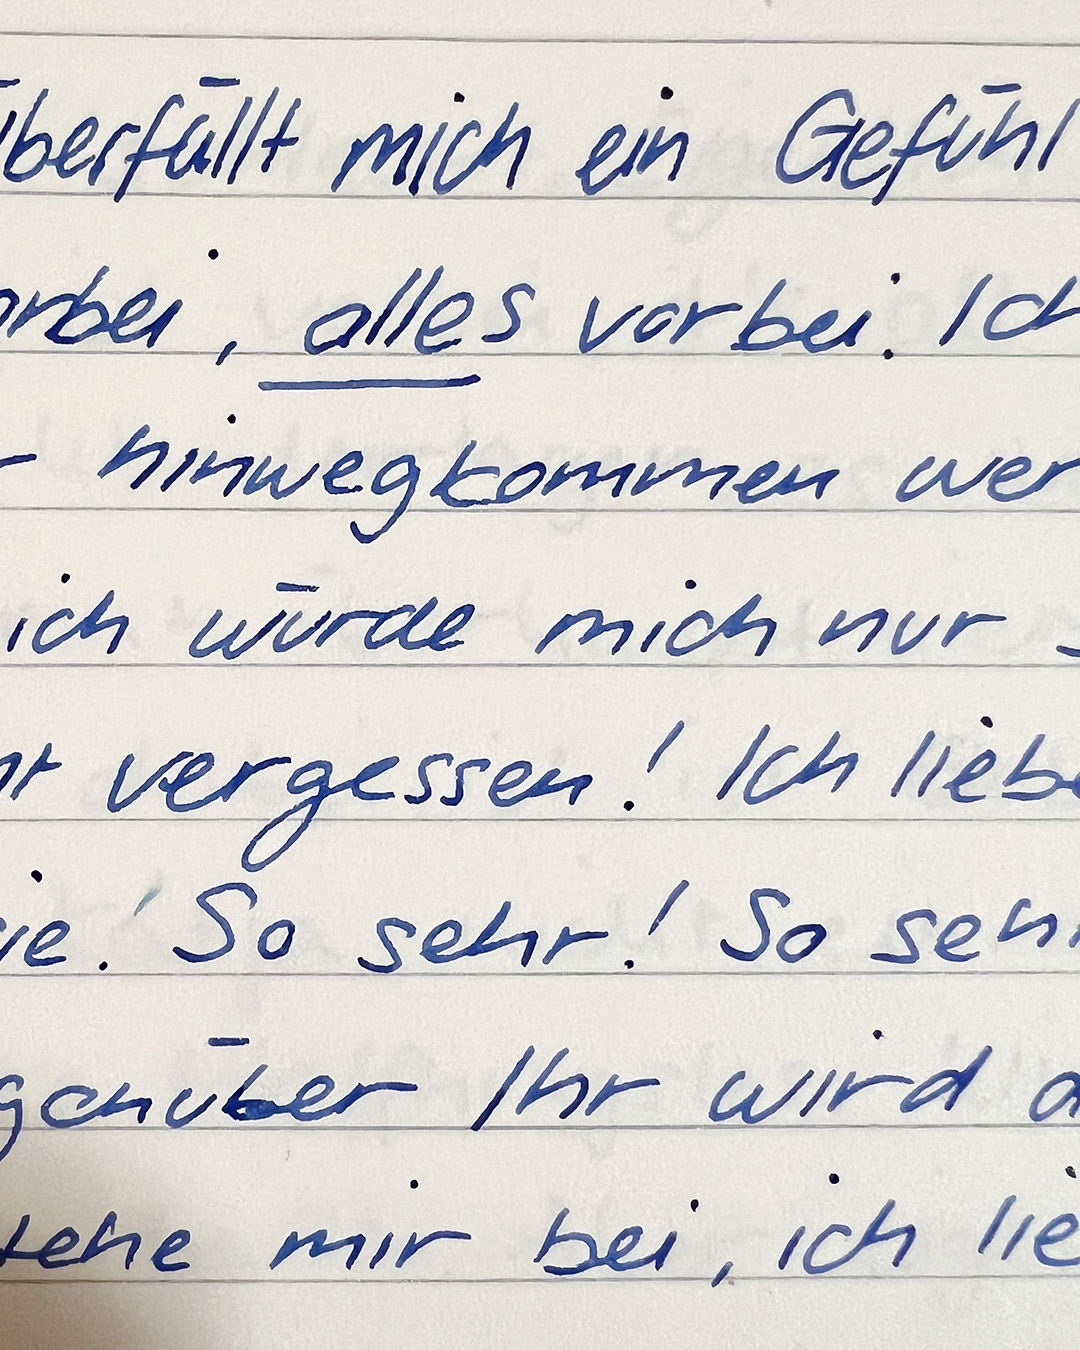 überfällt mich ein Gefühl
orbei, alles vorbei. Ich
hinwegkommen wer
ich würde mich nur
ht vergessen! Ich liebe
sie! So sehr! So sehr
genüber Ihr wird a
tehe mir bei, ich lie